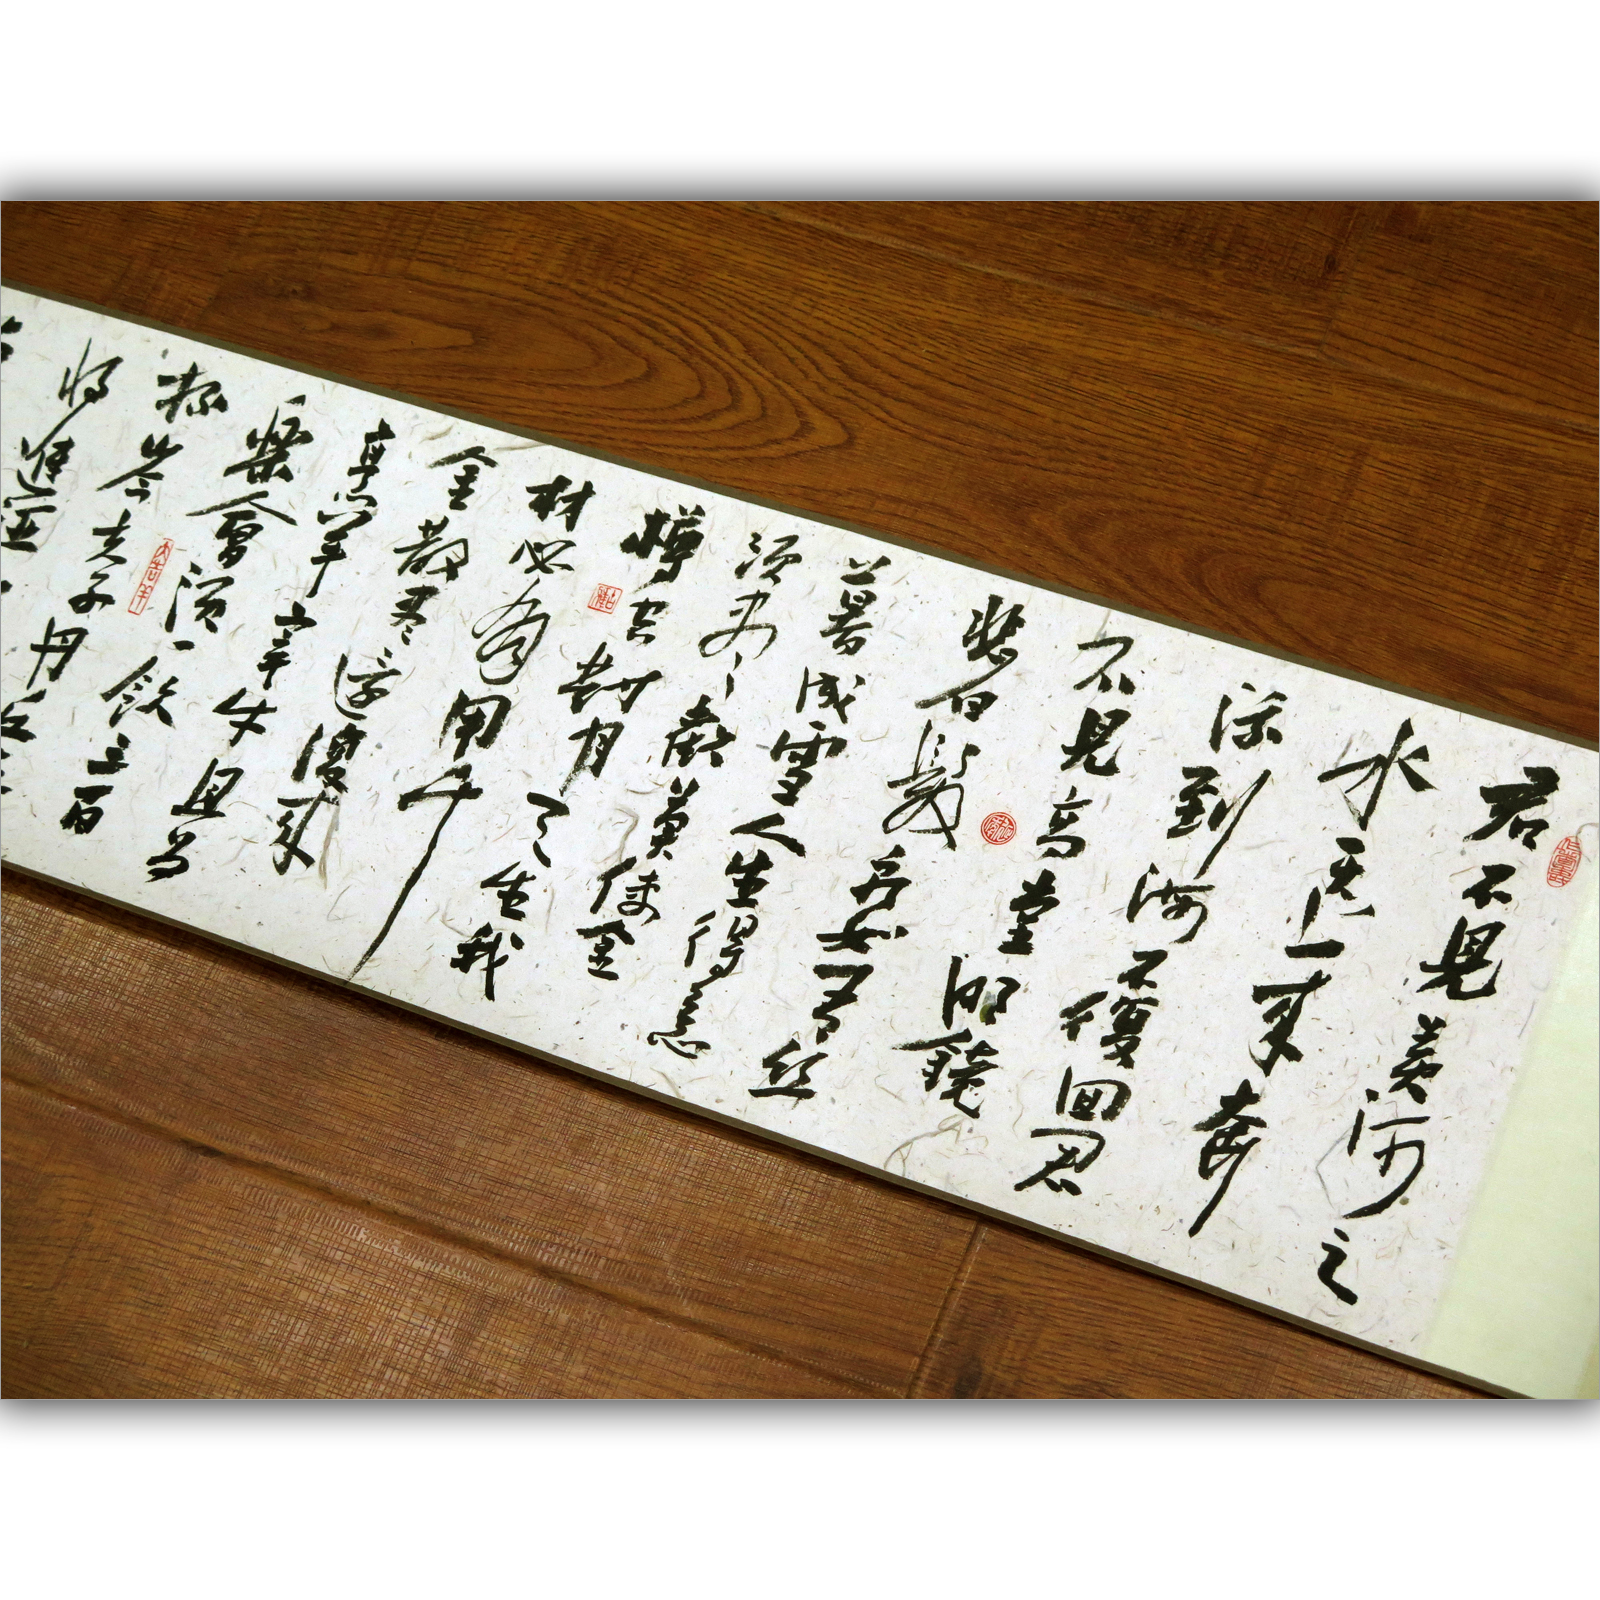 君不見黃河之
水天上來奔
流到海不復回君
不見高堂明鏡
悲白髮朝如青絲
暮成雪人生得意
須盡歡莫使金
樽空對月天生我
材必有用千
金散盡還復來
烹羊宰牛且為
樂會須一飲三百
杯岑夫子丹丘
將進酒